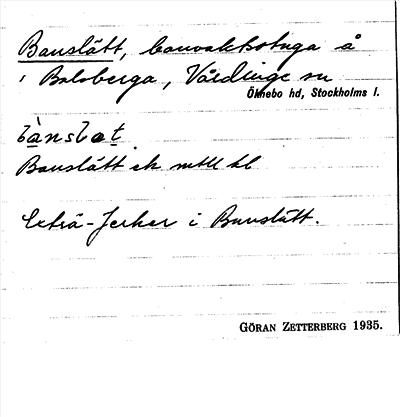 Banslätt, banvaktstuga å
i Balsberga, Vårdinge sn
Ölnebo hd, Stockholms l.
bànslæt
Banslätt ek mtl kl
Exträ-Jerker i Banslätt.
GÖRAN ZETTERBERG 1935.